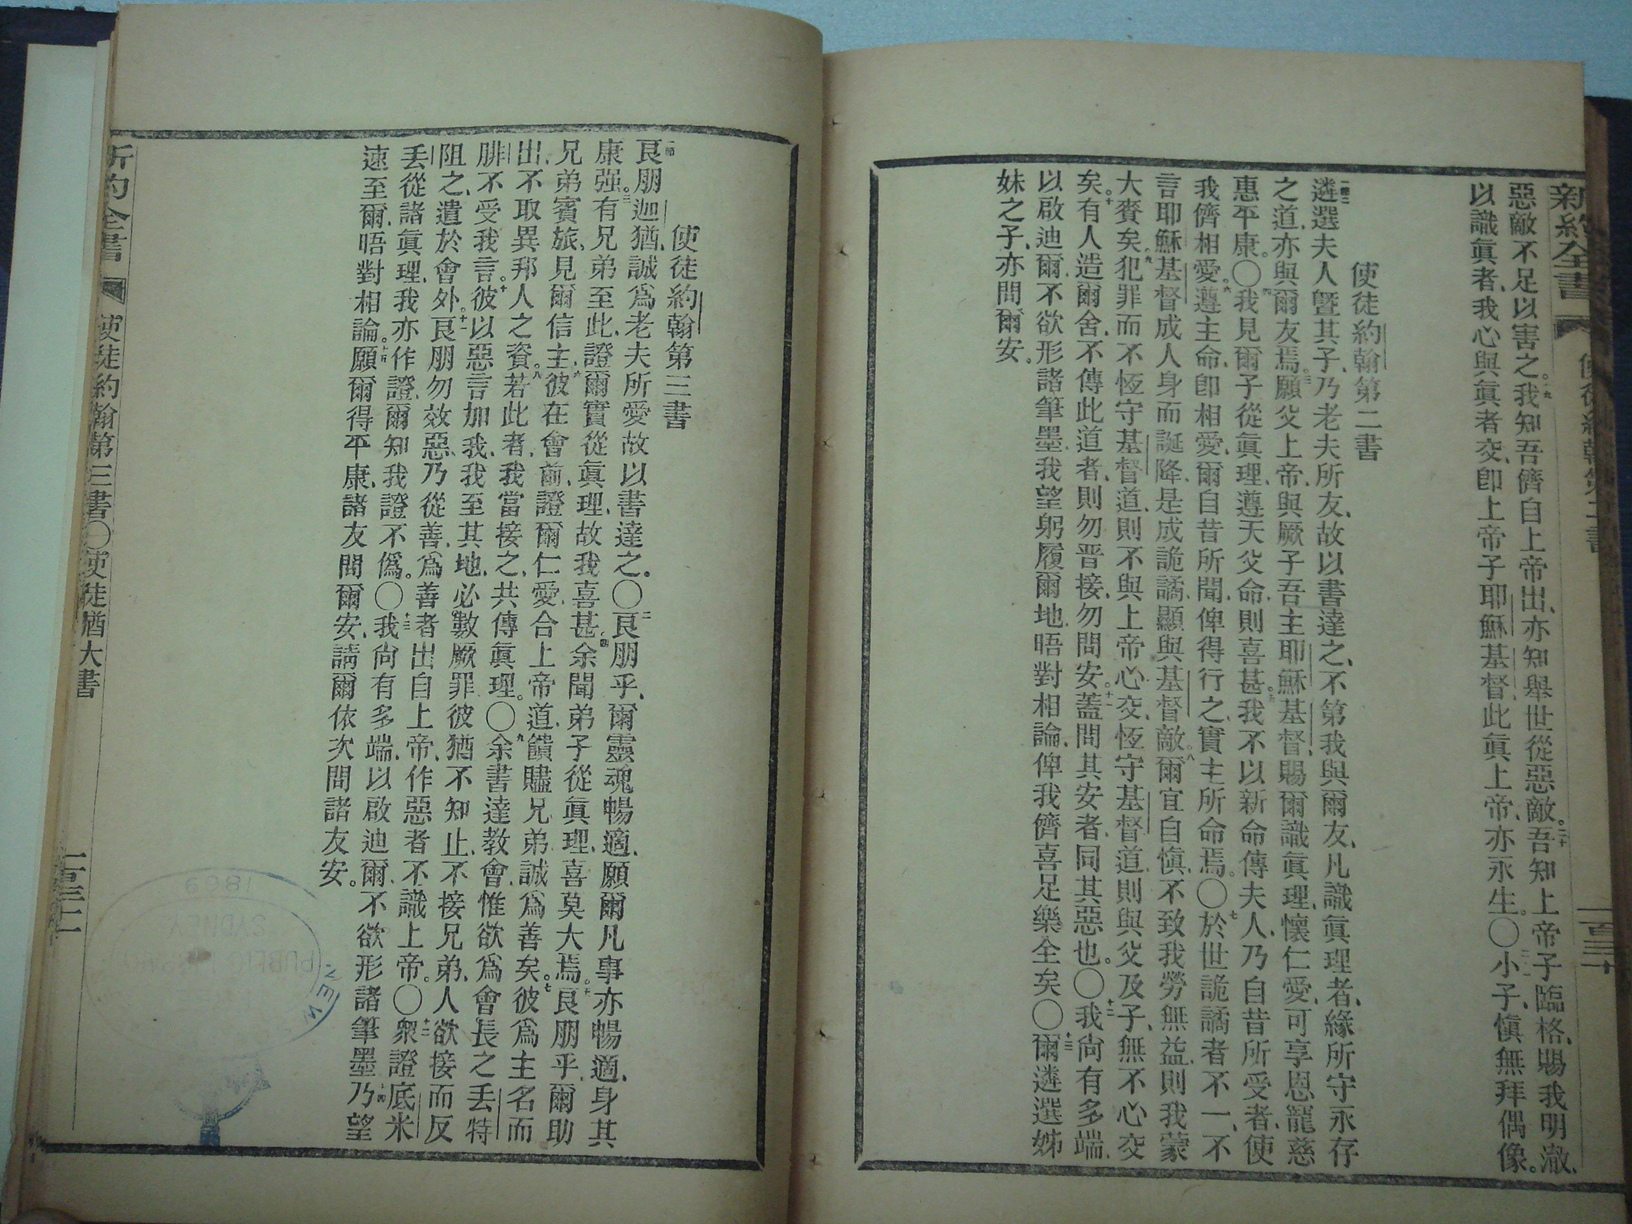 新約全書 使徒約翰第二書 一百三十
惡敵不足以害之。十九我知吾儕自上帝出、亦知舉世從惡敵。二十吾知上帝子臨格、賜我明澈、
以識眞者、我心與眞者交、卽上帝子耶穌基督、此眞上帝、亦永生。〇小子、愼無拜偶像。
使徒約翰第二書
遴選夫人曁其子、乃老夫所友、故以書達之、不第我與爾友、凡識眞理者、緣所守永存
之道、亦與爾友焉。三願父上帝、與厥子吾主耶穌基督、賜爾識眞理、懷仁愛、可享恩寵慈
惠平康。〇四我見爾子從眞理、遵天父命、則喜甚。五我不以新命傳夫人、乃自昔所受者、使
我儕相愛。六遵主命、卽相愛、爾自昔所聞、俾得行之、實主所命焉。〇七於世詭譎者不一、不
言耶穌基督成人身而誕降、是成詭譎、顯與基督敵。八爾宜自愼、不致我勞無益、則我蒙
大賚矣。九犯罪而不恆守基督道、則不與上帝心交、恆守基督道、則與父及子、無不心交
矣。十有人造爾舍、不傳此道者、則勿晋接、勿問安。十一蓋問其安者、同其惡也。〇十二我尙有多端、
以啟迪爾、不欲形諸筆墨、我望躬履爾地、晤對相論、俾我儕喜足樂全矣。〇十三爾遴選姊
妹之子、亦問爾安。
使徒約翰第三書
一節良朋迦猶、誠爲老夫所愛、故以書達之。〇二良朋乎、爾靈魂暢適、願爾凡事亦暢適、身其
康强。三有兄弟至此、證爾實從眞理、故我喜甚。四余聞弟子從眞理、喜莫大焉。五良朋乎、爾助
兄弟賓旅、見爾信主。六彼在會前、證爾仁愛、合上帝道、饋贐兄弟、誠爲善矣。七彼爲主名而
出、不取異邦人之資。八若此者、我當接之、共傳眞理。〇九余書達教會、惟欲爲會長之丢特
腓、不受我言。十彼以惡言加我、我至其地、必數厥罪、彼猶不知止、不接兄弟、人欲接而反
阻之、遣於會外。十一良朋勿效惡、乃從善、爲善者出自上帝、作惡者不識上帝。〇十二衆證底米
丢從諸眞理、我亦作證、爾知我證不僞。〇十三我尙有多端、以啟迪爾、不欲形諸筆墨、十四乃望
速至爾、晤對相論。十五願爾得平康、諸友問爾安、請爾依次問諸友安。
新約全書 使徒約翰第三書〇使徒猶大書 一百三十一
PUBLIC
SYDNEY
1869